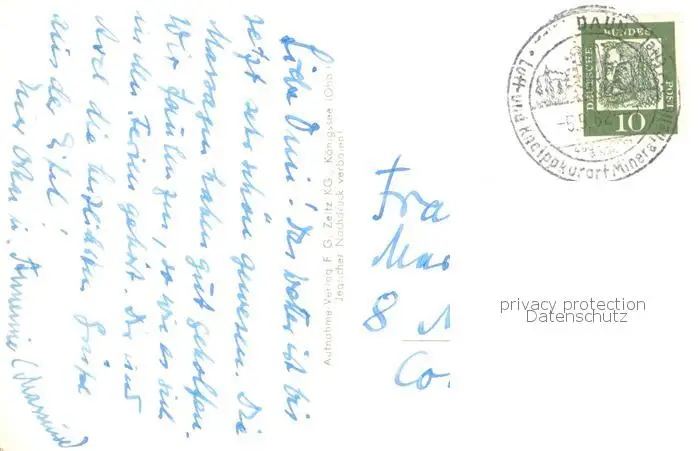 Liebe Omi! Das Wetter ist bis
jetzt sehr schön gewesen. Die
Massagen haben gut geholfen.
Wir faulenzen, so wie es sich
in den Ferien gehört. Dir und
Axel die herzlichsten Grüße
aus der Eifel
Aufnahme-Verlag F. G. Zeitz KG., Königssee /Obb.
Jeglicher Nachdruck verboten!
Fra
8
Co
DAUN
Luft und Kneippkurort Mineralheil
DEUTSCHE
BUNDES
POST
10
privacy protection
Datenschutz